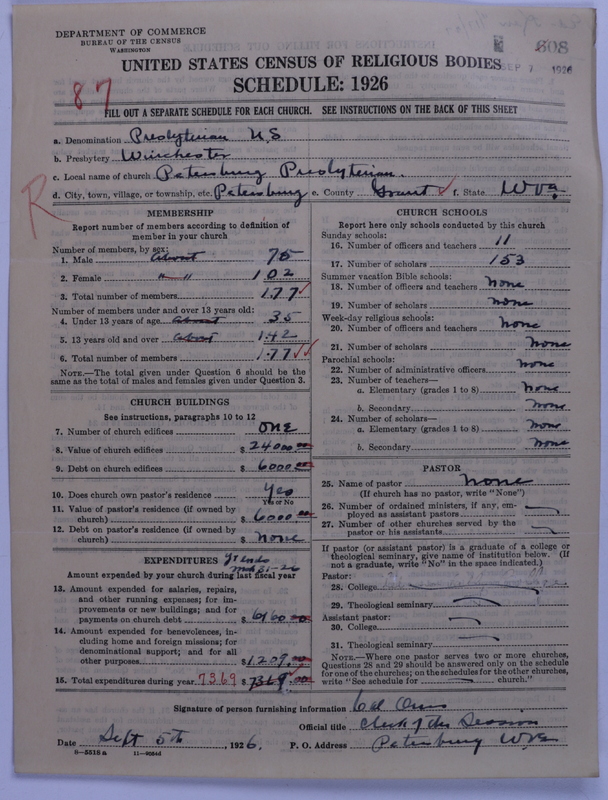 DEPARTMENT OF COMMERCE
BUREAU OF THE CENSUS
WASHINGTON
608
SEP 7 1926
UNITED STATES CENSUS OF RELIGIOUS BODIES
SCHEDULE: 1926
87
FILL OUT A SEPARATE SCHEDULE FOR EACH CHURCH. SEE INSTRUCTIONS ON THE BACK OF THIS SHEET
a. Denomination Presbyterian U.S
b. Presbytery Winchester
c. Local name of church Petersburg Presbyterian.
d. City, town, village, or township, etc. Petersburg e. County Grant f. State W Va.
R
MEMBERSHIP
Report number of members according to definition of member in your church
Number of members, by sex:
1. Male about 75
2. Female " " 102
3. Total number of members 177
Number of members under and over 13 years old:
4. Under 13 years of age about 35
5. 13 years old and over about 142
6. Total number of members 177
NOTE.—The total given under Question 6 should be the same as the total of males and females given under Question 3.
CHURCH BUILDINGS
See instructions, paragraphs 10 to 12
7. Number of church edifices one
8. Value of church edifices $ 24000.00
9. Debt on church edifices $ 6000.00
10. Does church own pastor's residence Yes
Yes or No
11. Value of pastor's residence (if owned by church) $ 6000.00
12. Debt on pastor's residence (if owned by church) $ none
EXPENDITURES Yr Ends Mch 31-26
Amount expended by your church during last fiscal year
13. Amount expended for salaries, repairs, and other running expenses; for improvements or new buildings; and for payments on church debt $ 6160.00
14. Amount expended for benevolences, including home and foreign missions; for denominational support; and for all other purposes $ 1209.00
15. Total expenditures during year 7369 $ 7369.00
CHURCH SCHOOLS
Report here only schools conducted by this church
Sunday schools:
16. Number of officers and teachers 11
17. Number of scholars 153
Summer vacation Bible schools:
18. Number of officers and teachers none
19. Number of scholars none
Week-day religious schools:
20. Number of officers and teachers none
21. Number of scholars none
Parochial schools:
22. Number of administrative officers none
23. Number of teachers—
a. Elementary (grades 1 to 8) none
b. Secondary none
24. Number of scholars—
a. Elementary (grades 1 to 8) none
b. Secondary none
PASTOR
25. Name of pastor none
(If church has no pastor, write "None")
26. Number of ordained ministers, if any, employed as assistant pastors
27. Number of other churches served by the pastor or his assistants
If pastor (or assistant pastor) is a graduate of a college or theological seminary, give name of institution below. (If not a graduate, write "No" in the space indicated.)
Pastor:
28. College
29. Theological seminary
Assistant pastor:
30. College
31. Theological seminary
NOTE.—Where one pastor serves two or more churches, Questions 28 and 29 should be answered only on the schedule for one of the churches; on the schedules for the other churches, write "See schedule for church."
Signature of person furnishing information
Official title Clerk of the Session
Date Sept 5th, 1926. P. O. Address Petersburg W Va
8-5818a 11-9064d